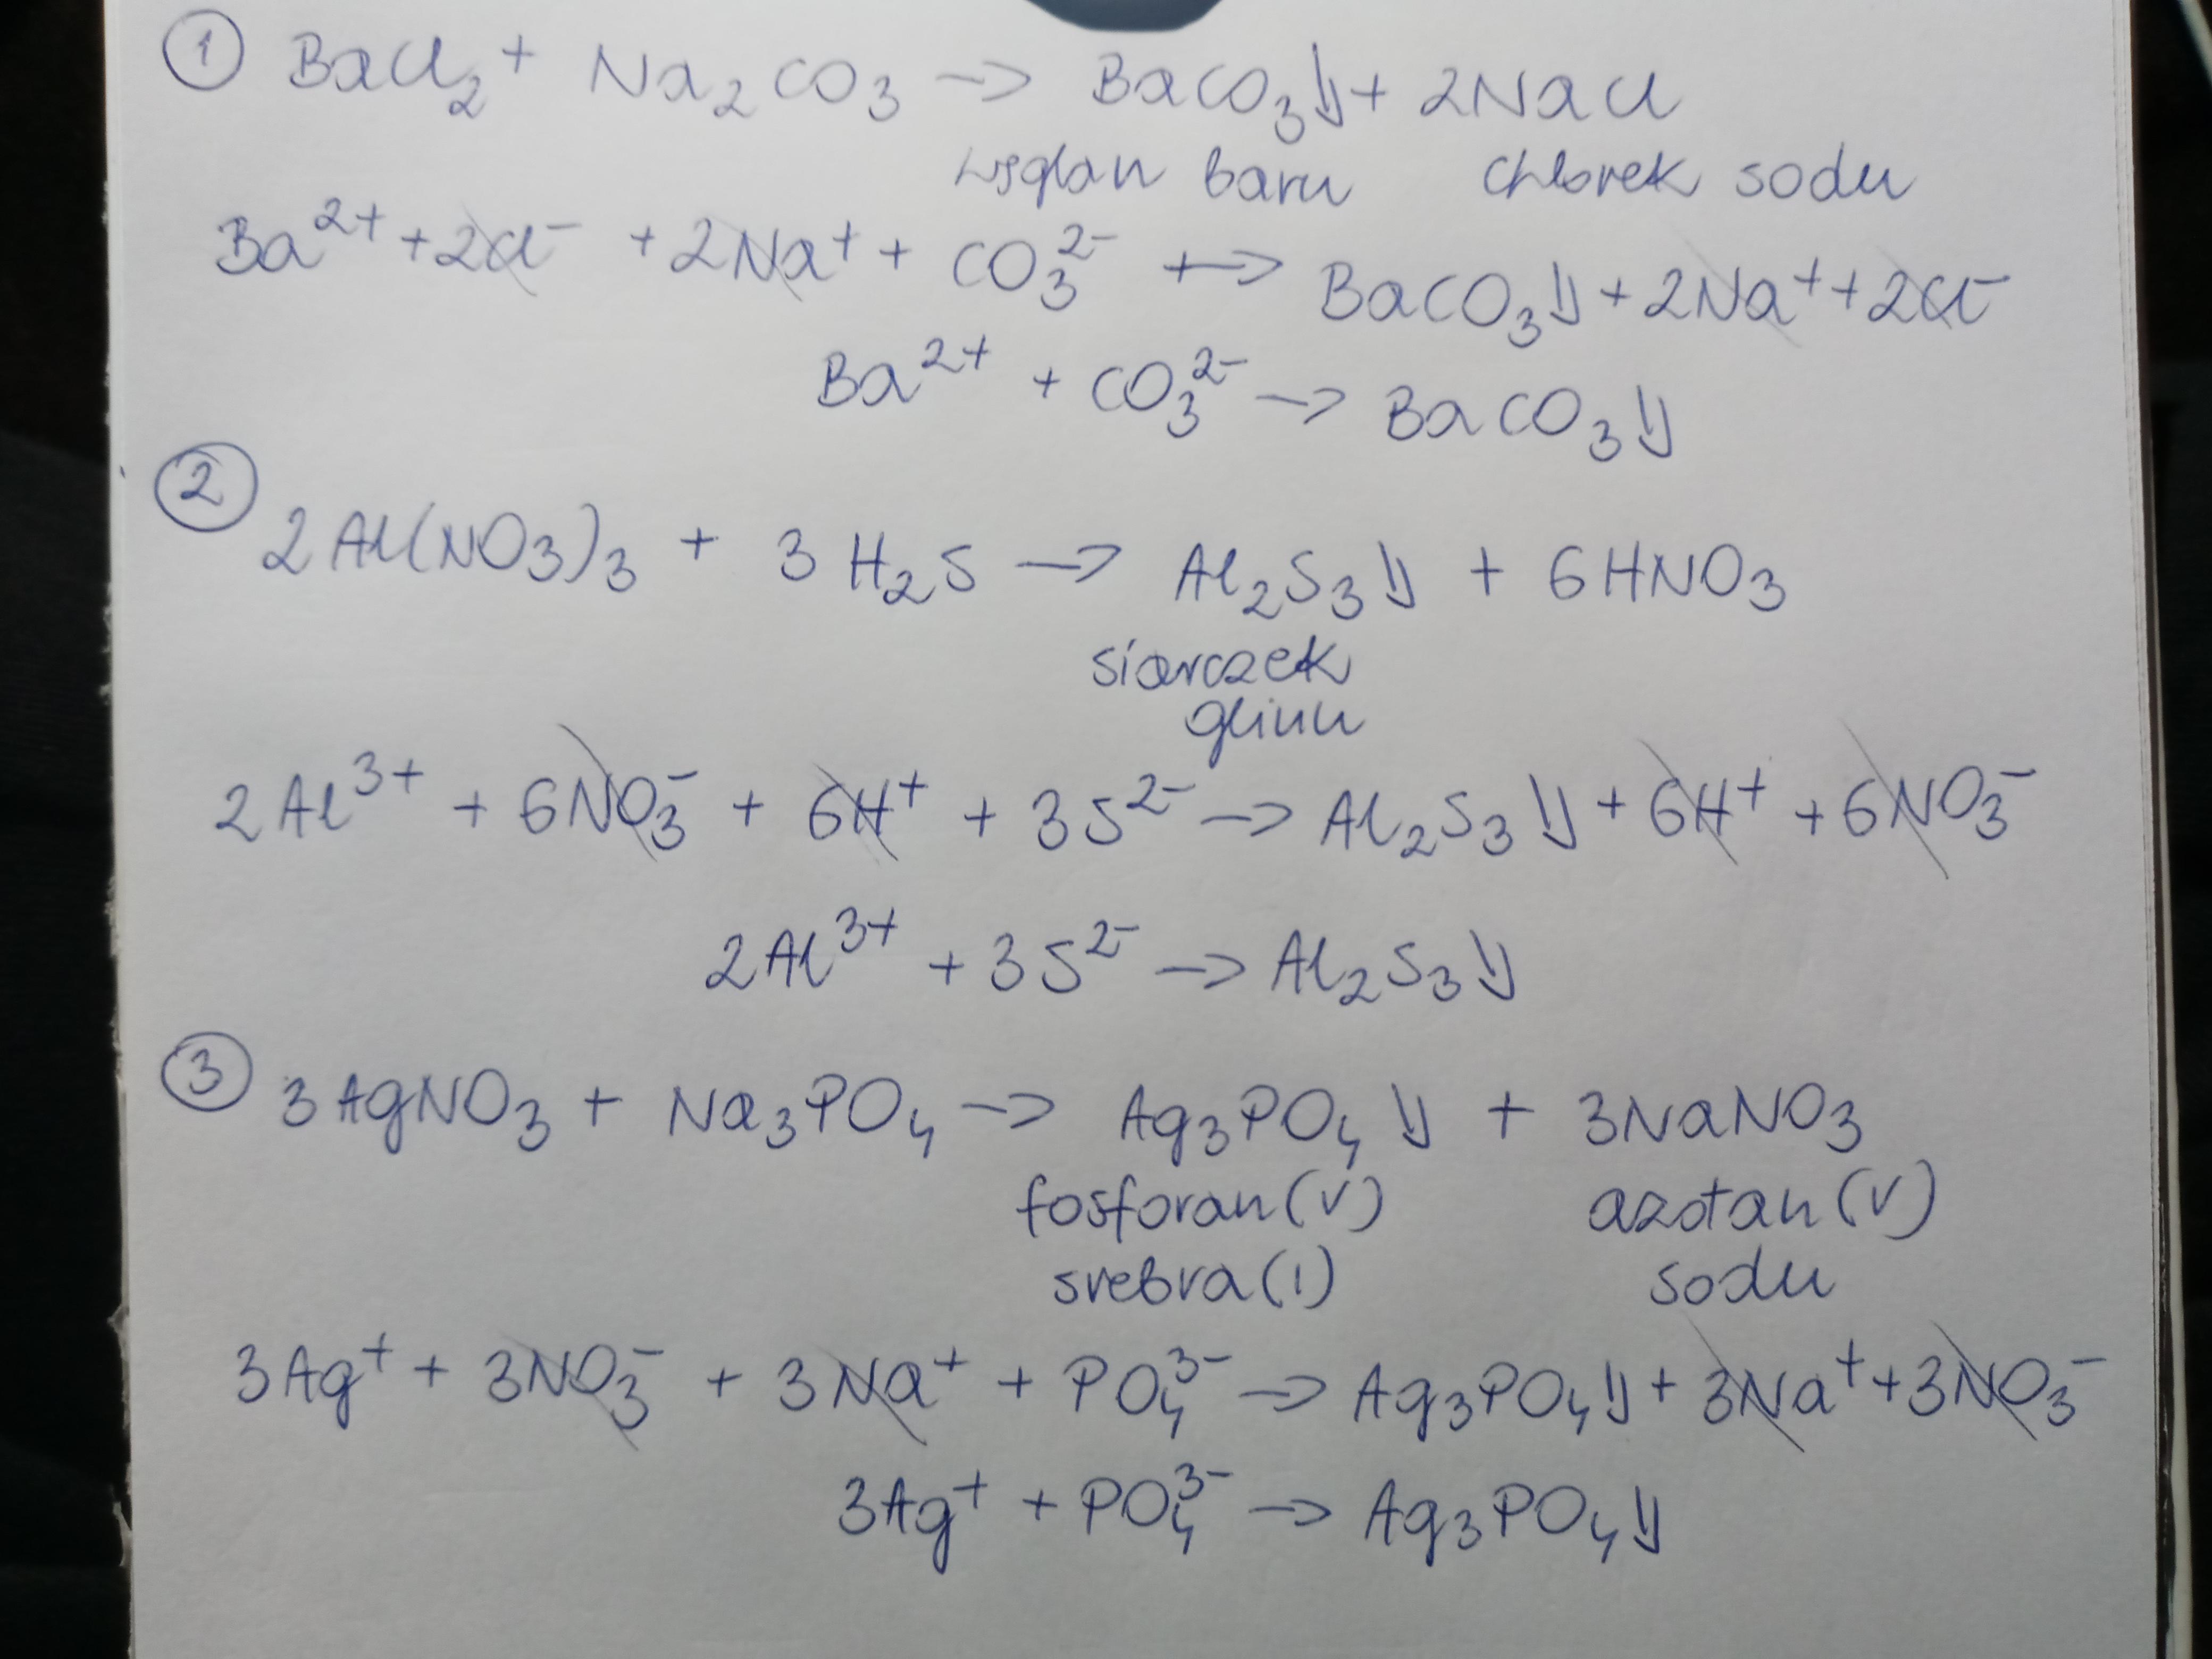 ① BaCl₂ + Na₂CO₃ → BaCO₃↓ + 2NaCl
węglan baru chlorek sodu
Ba²⁺ + 2Cl⁻ + 2Na⁺ + CO₃²⁻ → BaCO₃↓ + 2Na⁺ + 2Cl⁻
Ba²⁺ + CO₃²⁻ → BaCO₃↓
② 2Al(NO₃)₃ + 3H₂S → Al₂S₃↓ + 6HNO₃
siarczek
glinu
2Al³⁺ + 6NO₃⁻ + 6H⁺ + 3S²⁻ → Al₂S₃↓ + 6H⁺ + 6NO₃⁻
2Al³⁺ + 3S²⁻ → Al₂S₃↓
③ 3AgNO₃ + Na₃PO₄ → Ag₃PO₄↓ + 3NaNO₃
fosforan(V) azotan(V)
srebra(I) sodu
3Ag⁺ + 3NO₃⁻ + 3Na⁺ + PO₄³⁻ → Ag₃PO₄↓ + 3Na⁺ + 3NO₃⁻
3Ag⁺ + PO₄³⁻ → Ag₃PO₄↓